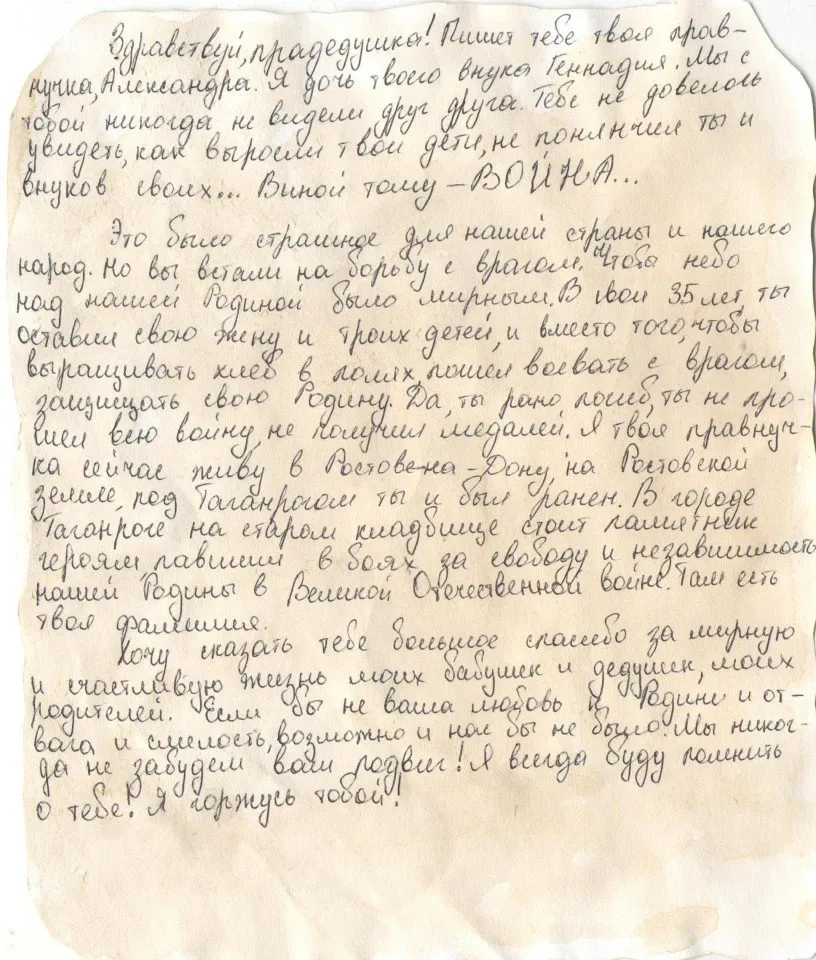 Здравствуй, прадедушка! Пишет тебе твоя прав-
нучка, Александра. Я дочь твоего внука Геннадия. Мы с
тобой никогда не видели друг друга. Тебе не довелось
увидеть, как выросли твои дети, не понянчил ты и
внуков своих... Виной тому – ВОЙНА...
Это было страшное для нашей страны и нашего
народ. Но вы встали на борьбу с врагом. Чтобы небо
над нашей Родиной было мирным. В свои 35 лет, ты
оставил свою жену и троих детей, и вместо того, чтобы
выращивать хлеб в полях, пошёл воевать с врагом,
защищать свою Родину. Да, ты рано погиб, ты не про-
шел всю войну, не получил медалей. Я твоя правнуч-
ка сейчас живу в Ростове-на-Дону, на Ростовской
земле, под Таганрогом ты и был ранен. В городе
Таганроге на старом кладбище стоит памятник
героям, павшим в боях за свободу и независимость
нашей Родины в Великой Отечественной войне. Там есть
твоя фамилия.
Хочу сказать тебе большое спасибо за мирную
и счастливую жизнь моих бабушек и дедушек, моих
родителей. Если бы не ваша любовь к Родине и от-
вага и смелость, возможно и нас бы не было. Мы никог-
да не забудем ваш подвиг! Я всегда буду помнить
о тебе! Я горжусь тобой!